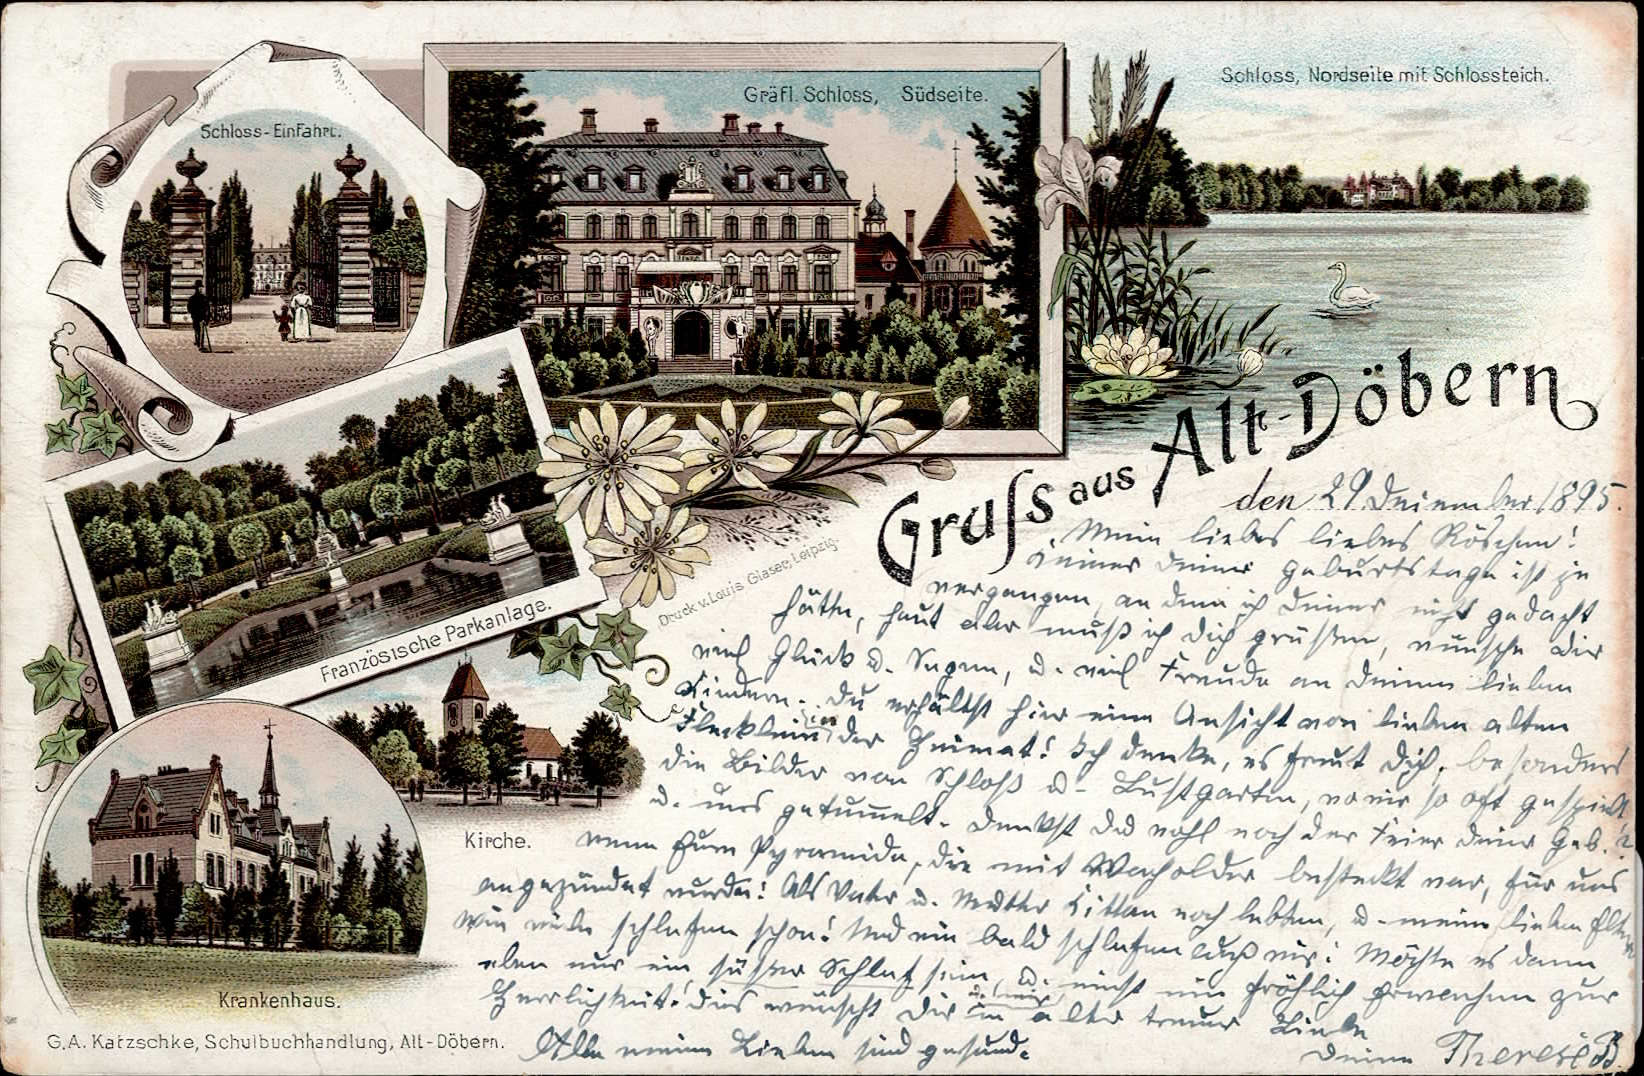 Schloss-Einfahrt.
Gräfl. Schloss, Südseite.
Schloss, Nordseite mit Schlossteich.
Französische Parkanlage.
Druck v. Louis Glaser, Leipzig.
Kirche.
Krankenhaus.
G.A. Katzschke, Schulbuchhandlung, Alt-Döbern.
Gruss aus Alt-Döbern
den 29 Dezember 1895.
Mein liebes liebes Röschen!
Keiner Deiner Geburtstage ist je
vergangen, an dem ich Deiner nicht gedacht
hätte, heut aber muß ich Dich grüßen, wünsche Dir
viel Glück u. Segen, u. viel Freude an Deinen lieben
Kindern. Du erhältst hier eine Ansicht von lieben alten
Flecklein der Heimat! Ich denke, es freut Dich, besonders
die Bilder von Schloß u. Lustgarten, wo wir so oft gespielt
u. uns getummelt. Denkst Du wohl noch der Feier Deiner Geb.
wenn Eure Pyramide, die mit Wacholder besteckt war, für uns
angezündet wurde! Als Vater u. Mutter noch lebten, u. meine lieben Eltern
Wie viele schlafen schon! Und wie bald schlafen auch wir! Möchte es dann
eben nur ein süßer Schlaf sein, u. nicht ein fröhlich Erwachen zur
Herrlichkeit! Dies wünscht Dir u. mir in alter treuer Liebe
Deine Therese B.
Alle meine Lieben sind gesund.